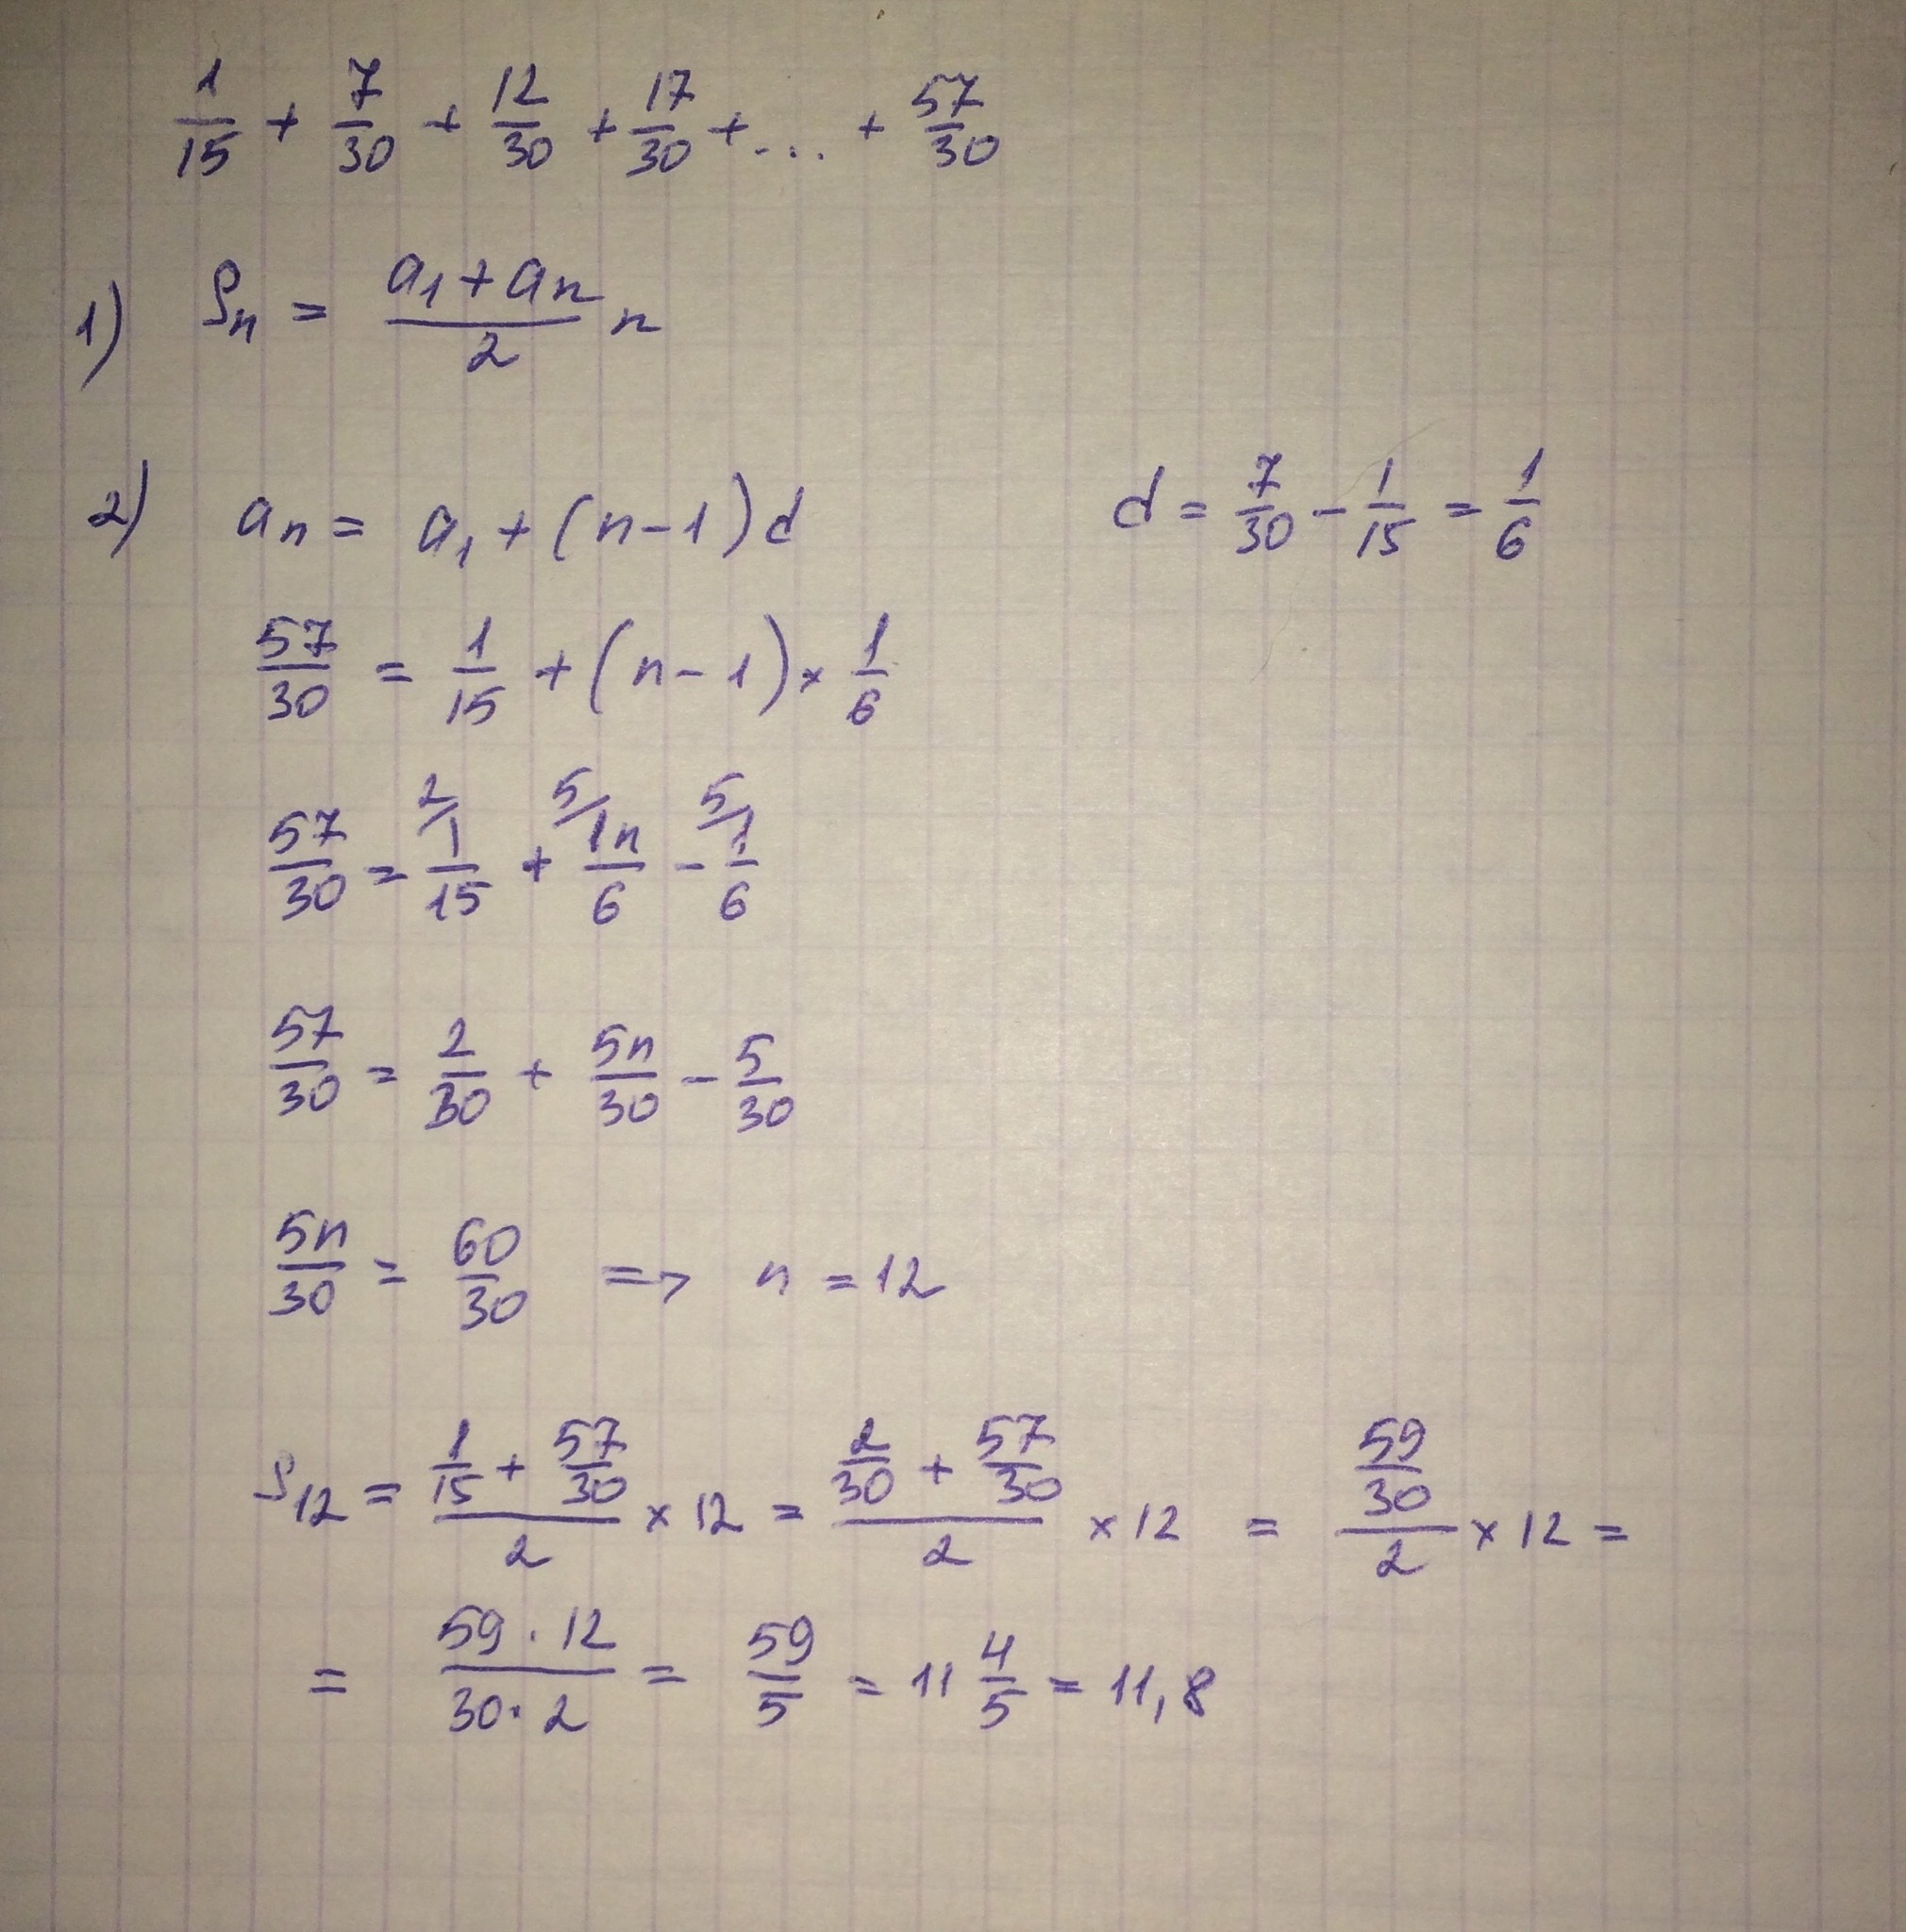 1/15 + 7/30 + 12/30 + 17/30 + ... + 57/30
1) Sn = (a1 + an)/2 n
2) an = a1 + (n-1)d d = 7/30 - 1/15 = 1/6
57/30 = 1/15 + (n-1) × 1/6
57/30 = 2/ 1/15 + 5/ 1n/6 - 5/ 1/6
57/30 = 2/30 + 5n/30 - 5/30
5n/30 = 60/30 => n = 12
S12 = (1/15 + 57/30)/2 × 12 = (2/30 + 57/30)/2 × 12 = (59/30)/2 × 12 =
= (59 · 12)/(30 · 2) = 59/5 = 11 4/5 = 11,8